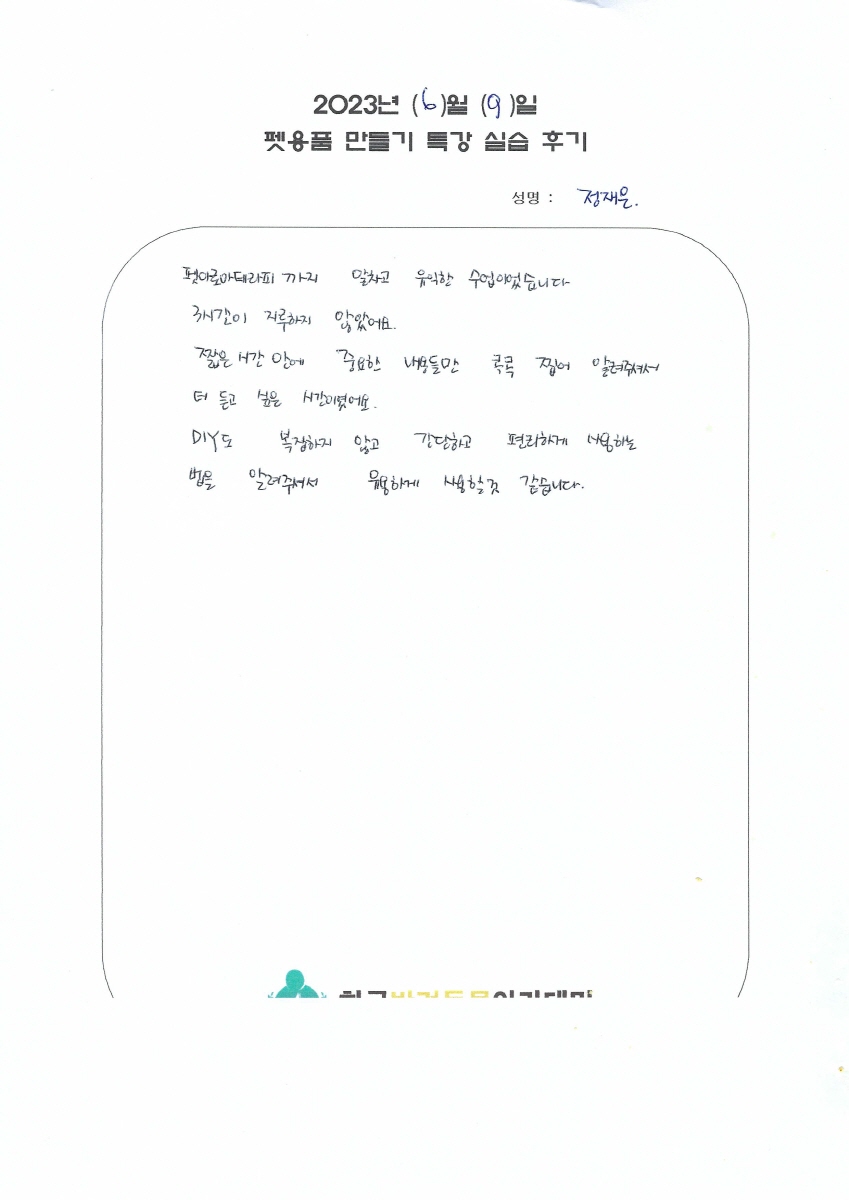 2023년 (6)월 (9)일
펫용품 만들기 특강 실습 후기
성명 : 정재은.
펫아로마테라피 까지 알차고 유익한 수업이었습니다
3시간이 지루하지 않았어요.
짧은 시간 안에 중요한 내용들만 콕콕 찝어 알려주셔서
더 듣고 싶은 시간이였어요.
DIY도 복잡하지 않고 간단하고 편리하게 사용하는
법을 알려주셔서 유용하게 사용할 것 같습니다.